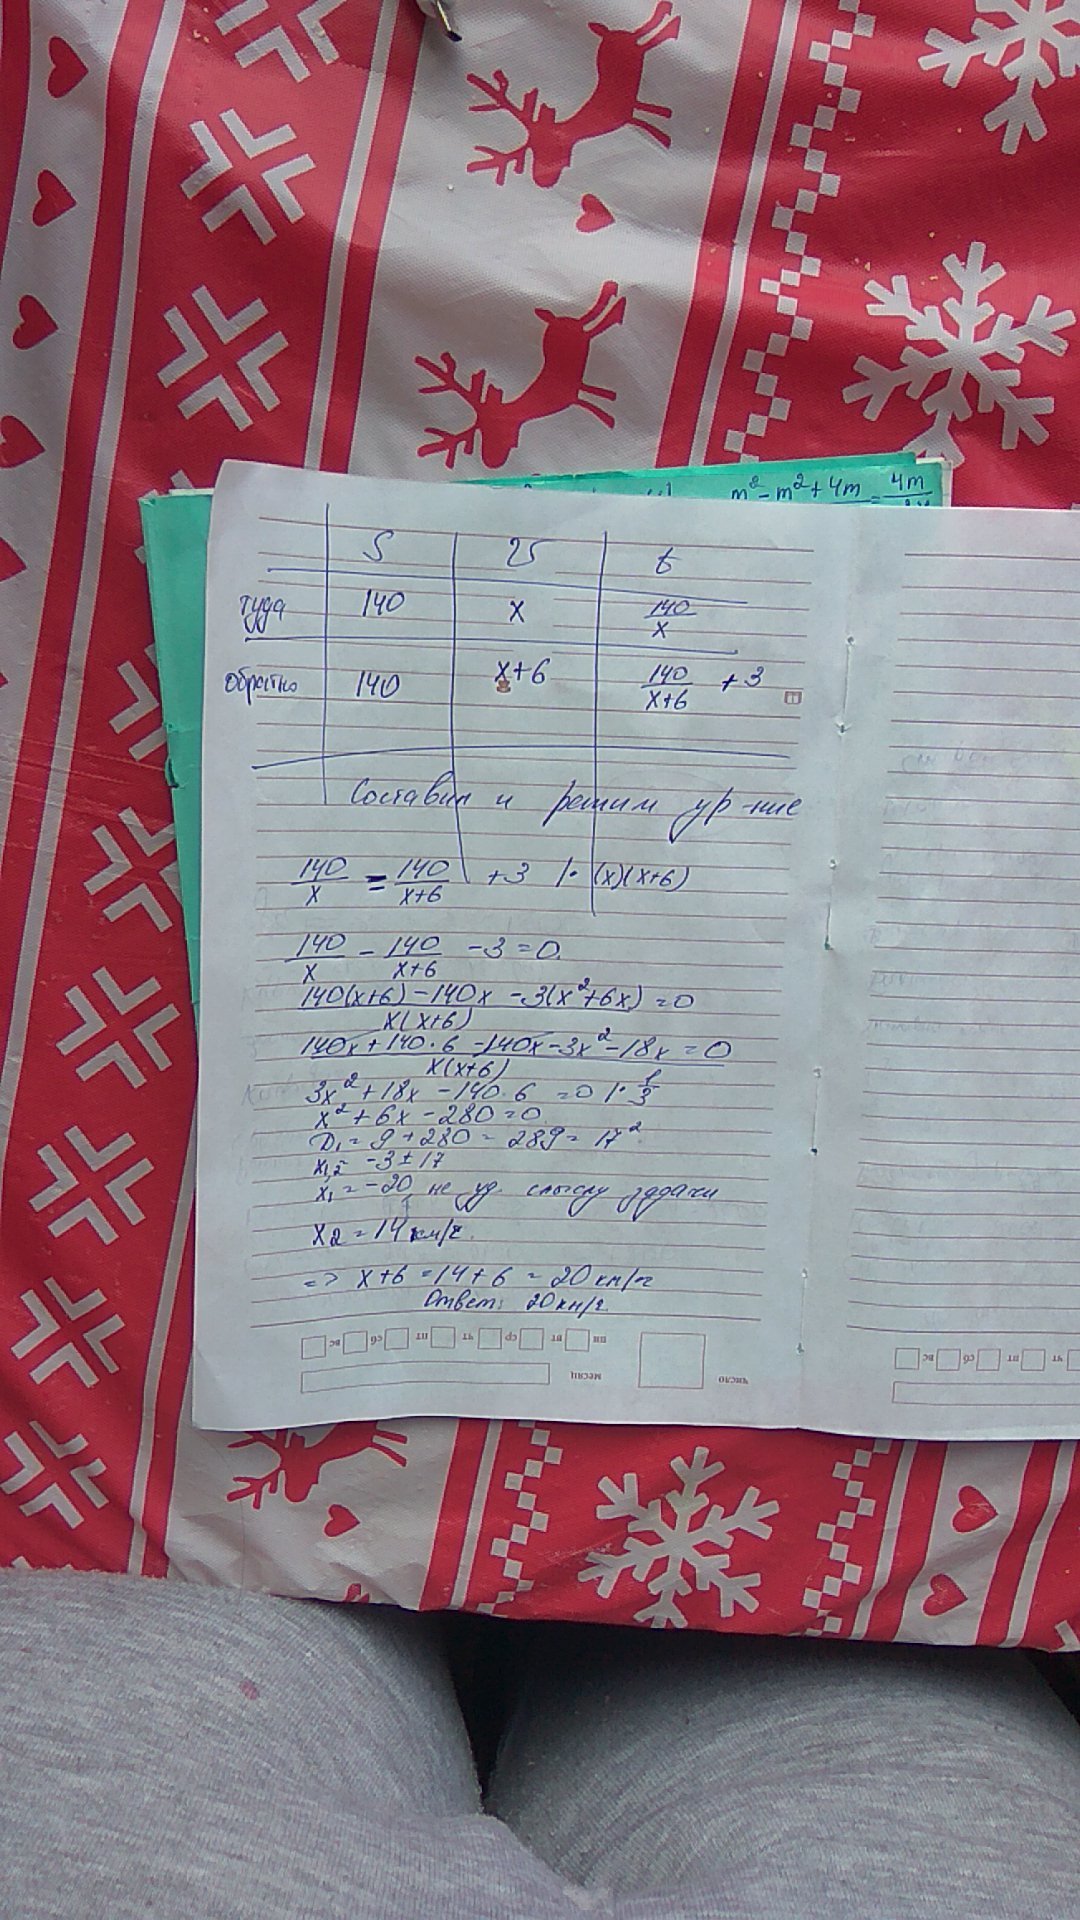 m² - m² + 4m = 4m
S υ t
туда 140 x 140/x
обратно 140 x+6 140/(x+6) + 3
Составим и решим ур-ние
140/x = 140/(x+6) + 3 |· (x)(x+6)
140/x - 140/(x+6) - 3 = 0
(140(x+6) - 140x - 3(x²+6x))/(x(x+6)) = 0
(140x + 140·6 - 140x - 3x² - 18x)/(x(x+6)) = 0
3x² + 18x - 140·6 = 0 |· 1/3
x² + 6x - 280 = 0
D₁ = 9 + 280 = 289 = 17²
x₁,₂ = -3 ± 17
x₁ = -20 не уд. смыслу задачи
x₂ = 14 км/ч.
=> x+6 = 14 + 6 = 20 км/ч
Ответ: 20 км/ч.
пн вт ср чт пт сб вс
число месяц
чт пт сб вс